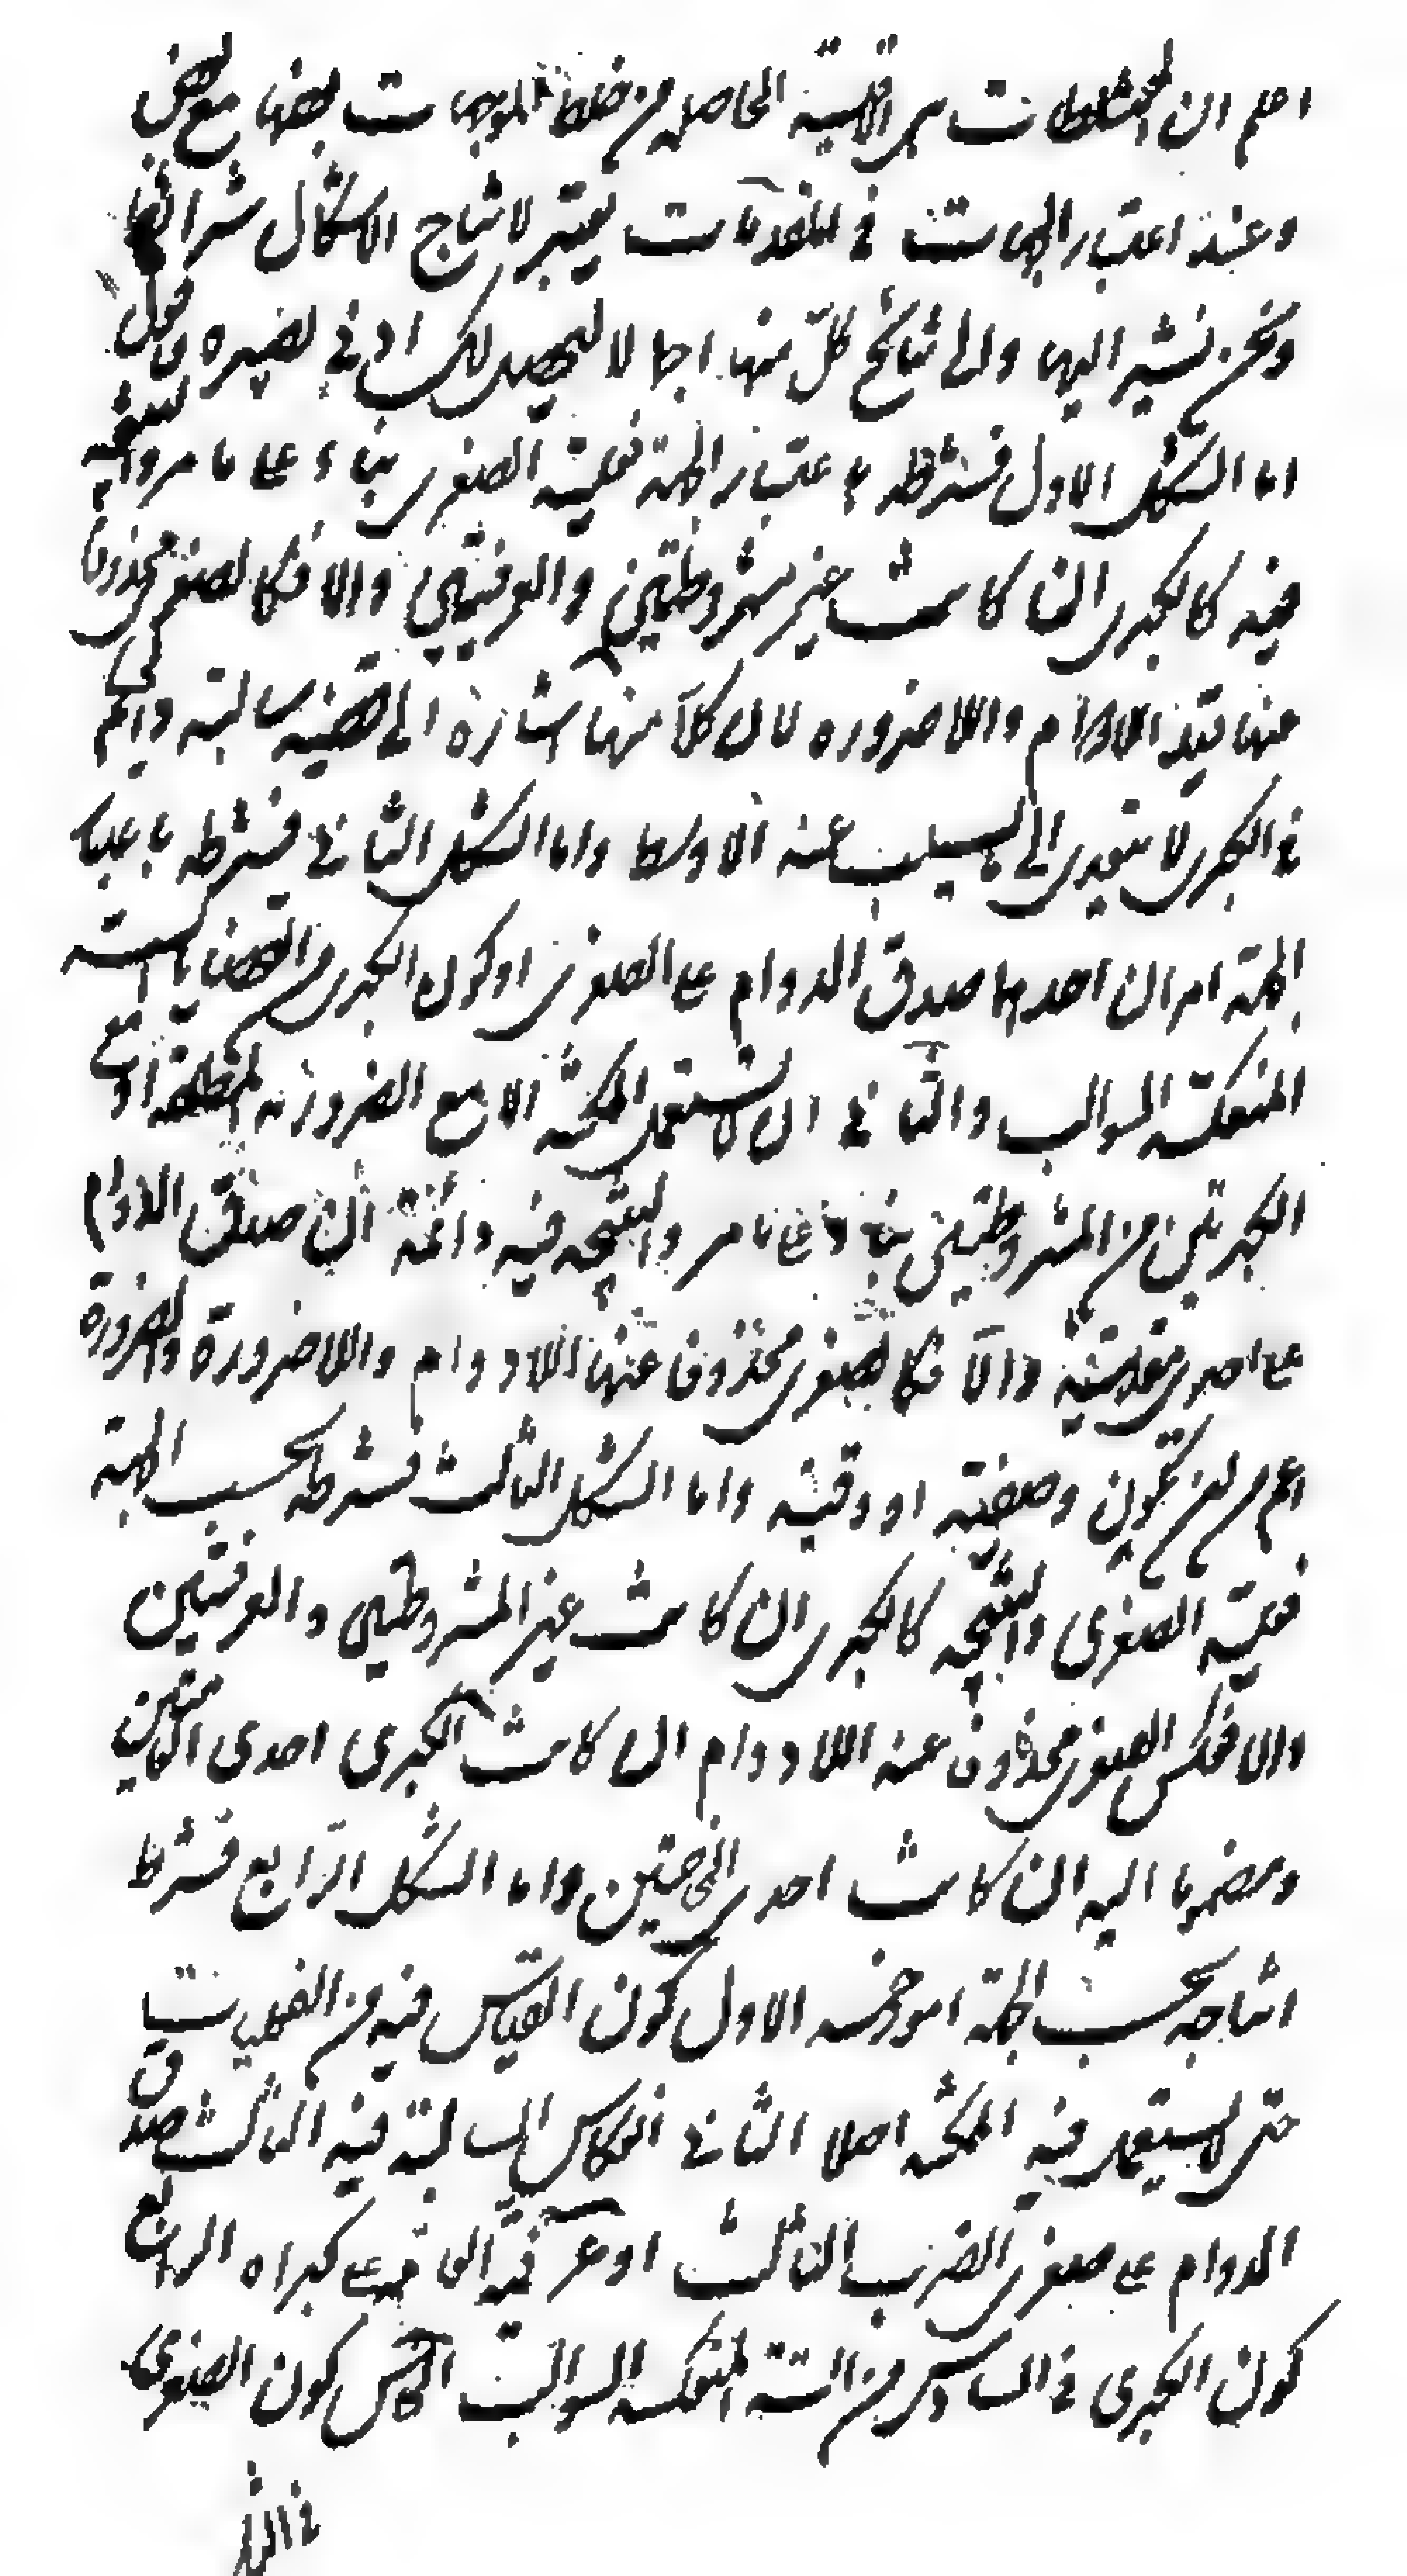 اعلم ان المختلطات هى الاقيسة الحاصلة من خلط الموجهات بعضها مع بعض
وعند اعتبار الجهات فى المقدمات يعتبر لانتاج الاشكال شرائط
ونحن نشير اليها والى نتائج كل منها اجمالا ليحصل لك ادنى بصيره فنقول
اما الشكل الاول فشرطه باعتبار الجهة فعلية الصغرى بناء على ما مر والنتيجه
فيه كالكبرى ان كانت غير مشروطتين والعرفيتين والا فكالصغرى محذوفا
عنها قيد اللادوام واللاضروره لان كلا منها اشارة الى قضيه سالبة والحكم
فى الكبرى لا يتعدى الى ما يسلب عنه الاوسط واما الشكل الثانى فشرطه باعتبار
الجهة امران احدها صدق الدوام على الصغرى او كون الكبرى من القضايا الستة
المنعكسة السوالب والثانى ان لا تستعمل الممكنة الا مع الضرورية المطلقة او مع
الكبريين من المشروطتين بناء على ما مر والنتيجه فيه دائمة ان صدق الدوام
على احدى مقدمتيه والا فكالصغرى محذوفا عنها اللادوام واللاضرورة والضرورة
اعم من ان تكون وصفية او وقتية واما الشكل الثالث فشرطه بحسب الجهة
فعلية الصغرى والنتيجه كالكبرى ان كانت غير المشروطتين والعرفيتين
والا فعكس الصغرى محذوفا عنه اللادوام ان كانت الكبرى احدى العامتين
ومضموما اليه ان كانت احدى الخاصتين واما الشكل الرابع فشرط
انتاجه بحسب الجهة امور خمسه الاول كون القياس فيه من الفعليات
حتى لا يستعمل فيه الممكنة اصلا الثانى انعكاس السالبة فيه الثالث صدق
الدوام على صغرى الضرب الثالث او العرفى العام على كبراه الرابع
كون الكبرى فى السادس من الستة المنعكسة السوالب الخامس كون الصغرى
فى الثا